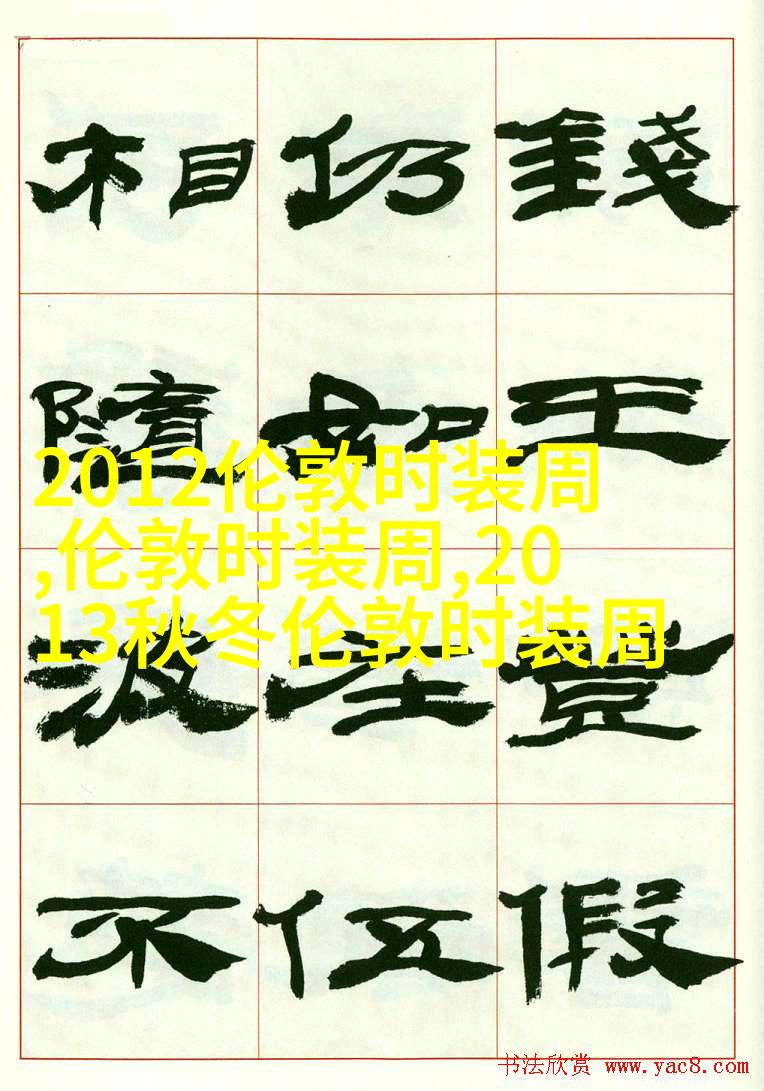 相 仍 錢
隨 如 王
2012伦敦时装周
,伦敦时装周,20
13秋冬伦敦时装周
波 注 豐
不 伍 假
书法欣赏 www.yac8.com